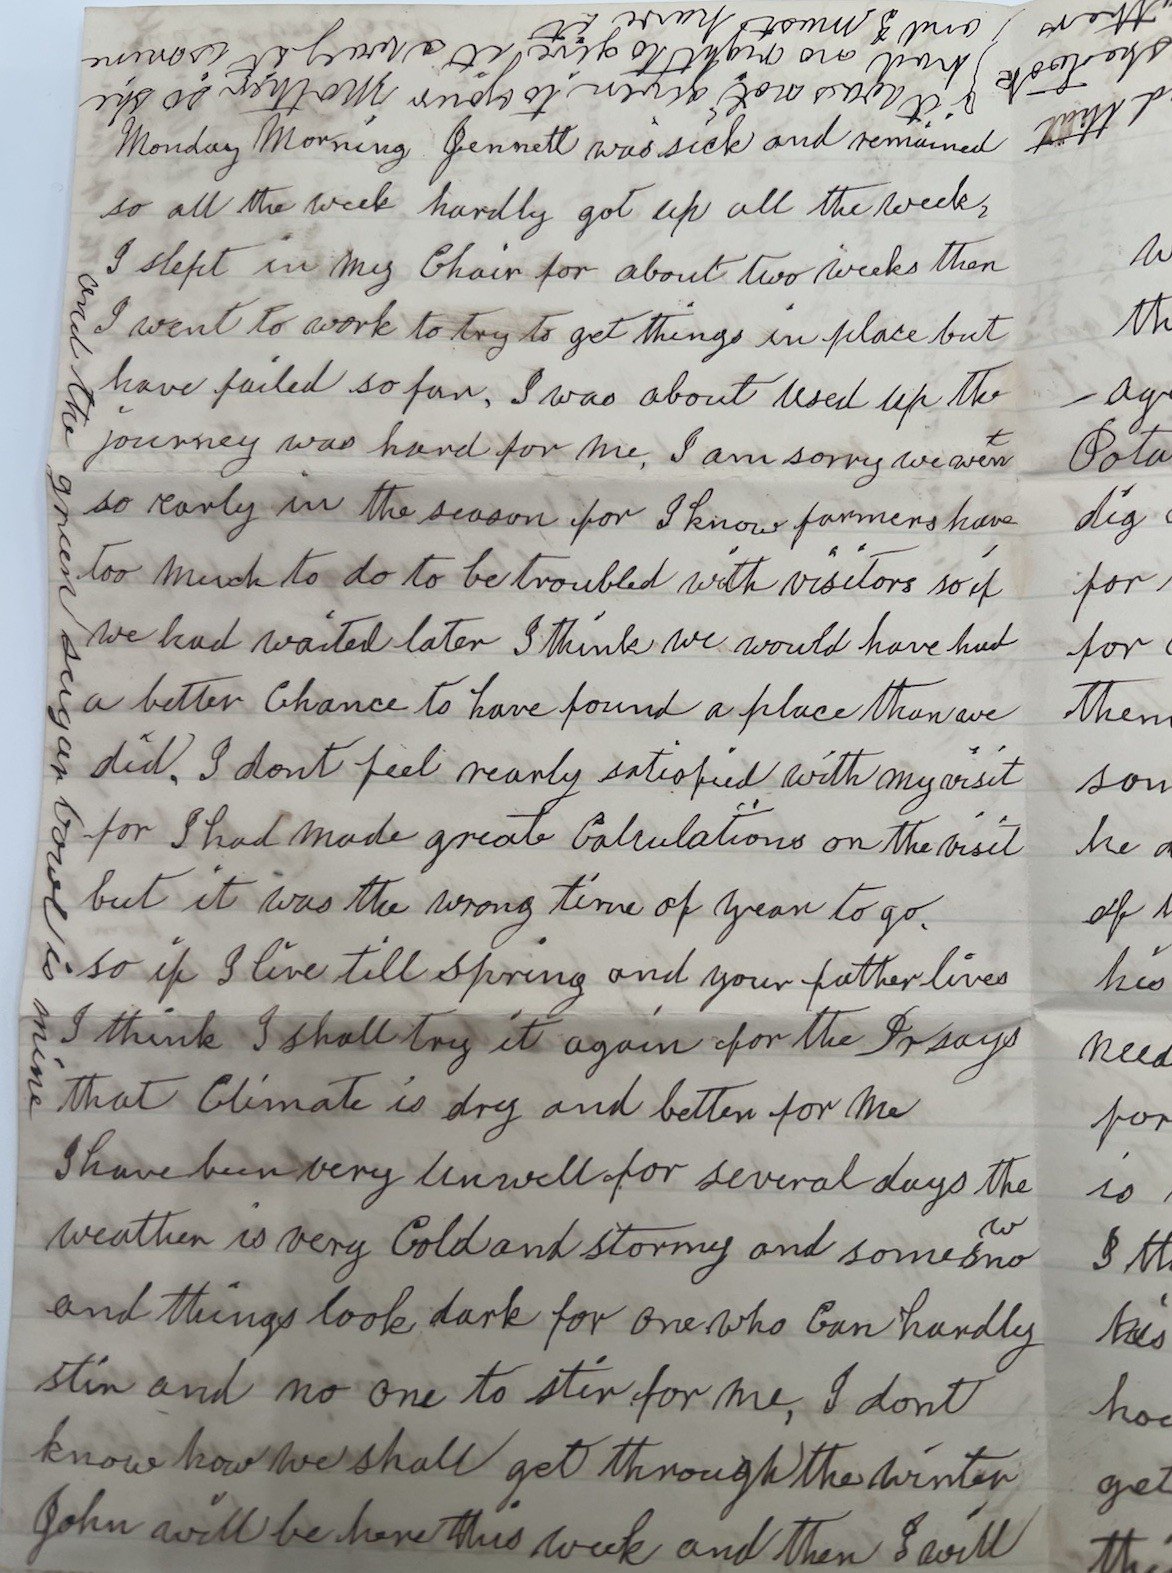 Monday Morning Jennett was sick and remained
so all the week hardly got up all the week,
I slept in my Chair for about two weeks then
I went to work to try to get things in place but
have failed so far, I was about used up the
journey was hard for me, I am sorry we went
so early in the season for I know farmers have
too much to do to be troubled with visitors so if
we had waited later I think we would have had
a better Chance to have found a place than we
did. I dont feel nearly satisfied with my visit
for I had made great Calculations on the visit
but it was the wrong time of year to go.
so if I live till spring and your father lives
I think I shall try it again for the Dr says
that Climate is dry and better for me
I have been very unwell for several days the
weather is very Cold and stormy and some snow
and things look dark for one who Can hardly
stir and no one to stir for me, I dont
know how we shall get through the winter
John will be here this week and then I will
and the grien sugar bowl is mine
it was not given to your Mother so she
had no right to give it away it is mine
and I must have it
she took
that
th
agr
Pota
dig
for
for
them
son
he
of
his
need
for
is
I th
his
get